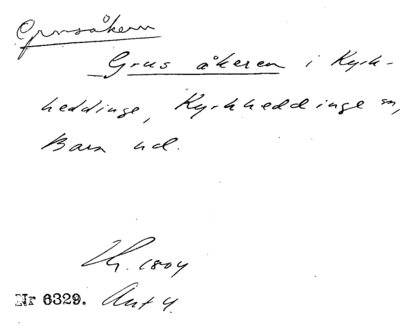 Grusåkern
Grus åkeren i Kyrk-
heddinge, Kyrkheddinge sn,
Bara hd.
1804
Nr 6329. Akt 4.